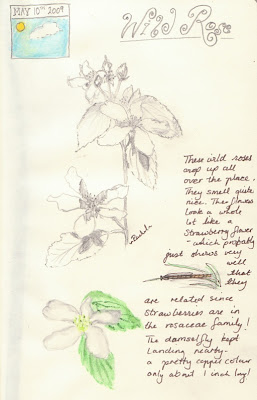 MAY 10TH 2009
Wild Rose
These wild roses
crop up all
over the place.
They smell quite
nice. The flowers
look a whole
lot like a
Strawberry flower
- which probably
just shows very
well
that
they
are related since
Strawberries are in
the rosaceae family!
The damselfly kept
Landing nearby -
a pretty copper colour
only about 1 inch long!